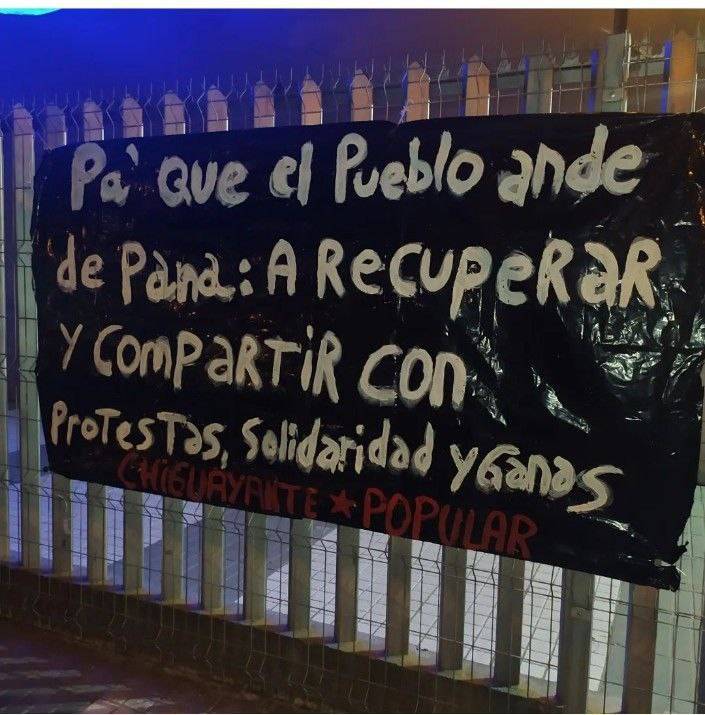 Pa' Que el Pueblo ande
de Pana: A RecupeRaR
Y COMPaRTiR CON
PROTesTas, Solidaridad y Ganas
CHIGUAYANTE ★ POPULAR